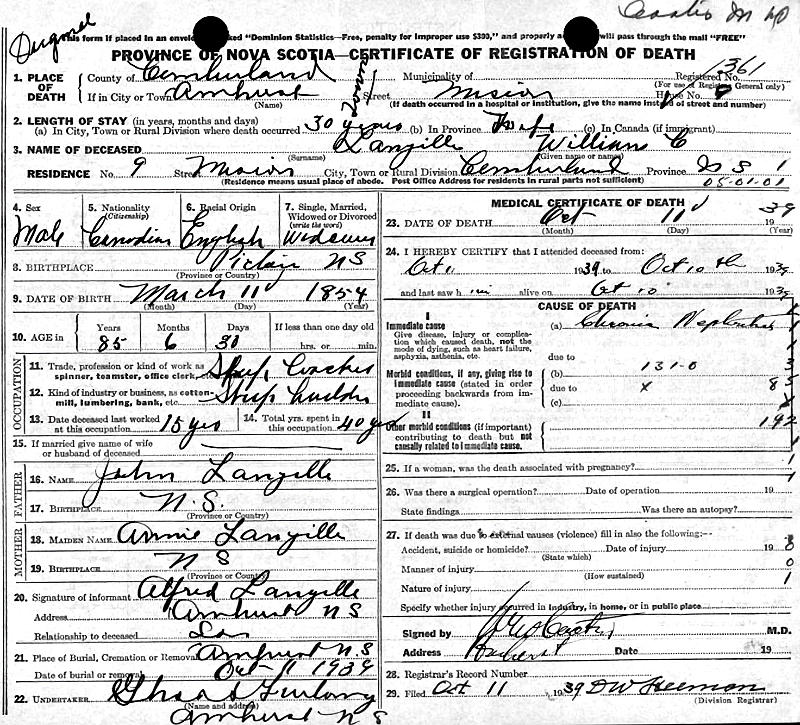 This form if placed in an envelope marked "Dominion Statistics—Free, penalty for improper use $300," and properly ad will pass through the mail "FREE"
PROVINCE OF NOVA SCOTIA—CERTIFICATE OF REGISTRATION OF DEATH
1. PLACE OF DEATH County of Cumberland Municipality of Registered No. 1361
(For use of Registrar General only)
If in City or Town Amherst Street Mission House No. 9
(Name) (If death occurred in a hospital or institution, give the name instead of street and number)
2. LENGTH OF STAY (in years, months and days)
(a) In City, Town or Rural Division where death occurred 30 years (b) In Province Life (c) In Canada (if immigrant)
3. NAME OF DECEASED Langille William C
(Surname) (Given name or names)
RESIDENCE No. 9 Street City, Town or Rural Division Cumberland Province N S 1
(Residence means usual place of abode. Post Office Address for residents in rural parts not sufficient) 05.01.01
4. Sex Male
5. Nationality (Citizenship) Canadian
6. Racial Origin English
7. Single, Married, Widowed or Divorced (write the word) Widower
8. BIRTHPLACE NS
(Province or Country)
9. DATE OF BIRTH March 11 1854
(Month) (Day) (Year)
10. AGE in Years 85 Months 6 Days 30 If less than one day old hrs. or min.
OCCUPATION
11. Trade, profession or kind of work as spinner, teamster, office clerk, etc. Ship
12. Kind of industry or business, as cotton-mill, lumbering, bank, etc. Ship builder
13. Date deceased last worked at this occupation 15 yrs
14. Total yrs. spent in this occupation 40 yrs
15. If married give name of wife or husband of deceased
FATHER
16. NAME John Langille
17. BIRTHPLACE N.S.
(Province or Country)
MOTHER
18. MAIDEN NAME Annie Langille
19. BIRTHPLACE N S
(Province or Country)
20. Signature of informant Alfred Langille
Address Amherst N S
Relationship to deceased
21. Place of Burial, Cremation or Removal Amherst N.S
Date of burial or removal Oct 11 1939
22. UNDERTAKER Furlong
(Name and address)
Amherst N S
MEDICAL CERTIFICATE OF DEATH
23. DATE OF DEATH Oct 11 1939
(Month) (Day) (Year)
24. I HEREBY CERTIFY that I attended deceased from:
Oct 1939 to Oct 10th 1939
and last saw him alive on Oct 10 1939
CAUSE OF DEATH
I
Immediate cause (a) Chronic Nephritis
Give disease, injury or complication which caused death, not the mode of dying, such as heart failure, asphyxia, asthenia, etc.
due to
(b) 131-0 3
Morbid conditions, if any, giving rise to immediate cause (stated in order proceeding backwards from immediate cause).
due to x 85
(c)
II
Other morbid conditions (if important) contributing to death but not causally related to immediate cause. 192
25. If a woman, was the death associated with pregnancy? 1
26. Was there a surgical operation? Date of operation 19
State findings Was there an autopsy?
27. If death was due to external causes (violence) fill in also the following:—
Accident, suicide or homicide? Date of injury 19
(State which)
Manner of injury 0
(How sustained)
Nature of injury 1
Specify whether injury occurred in industry, in home, or in public place
Signed by M.D.
Address Amherst Date 19
28. Registrar's Record Number
29. Filed Oct 11 1939
(Division Registrar)